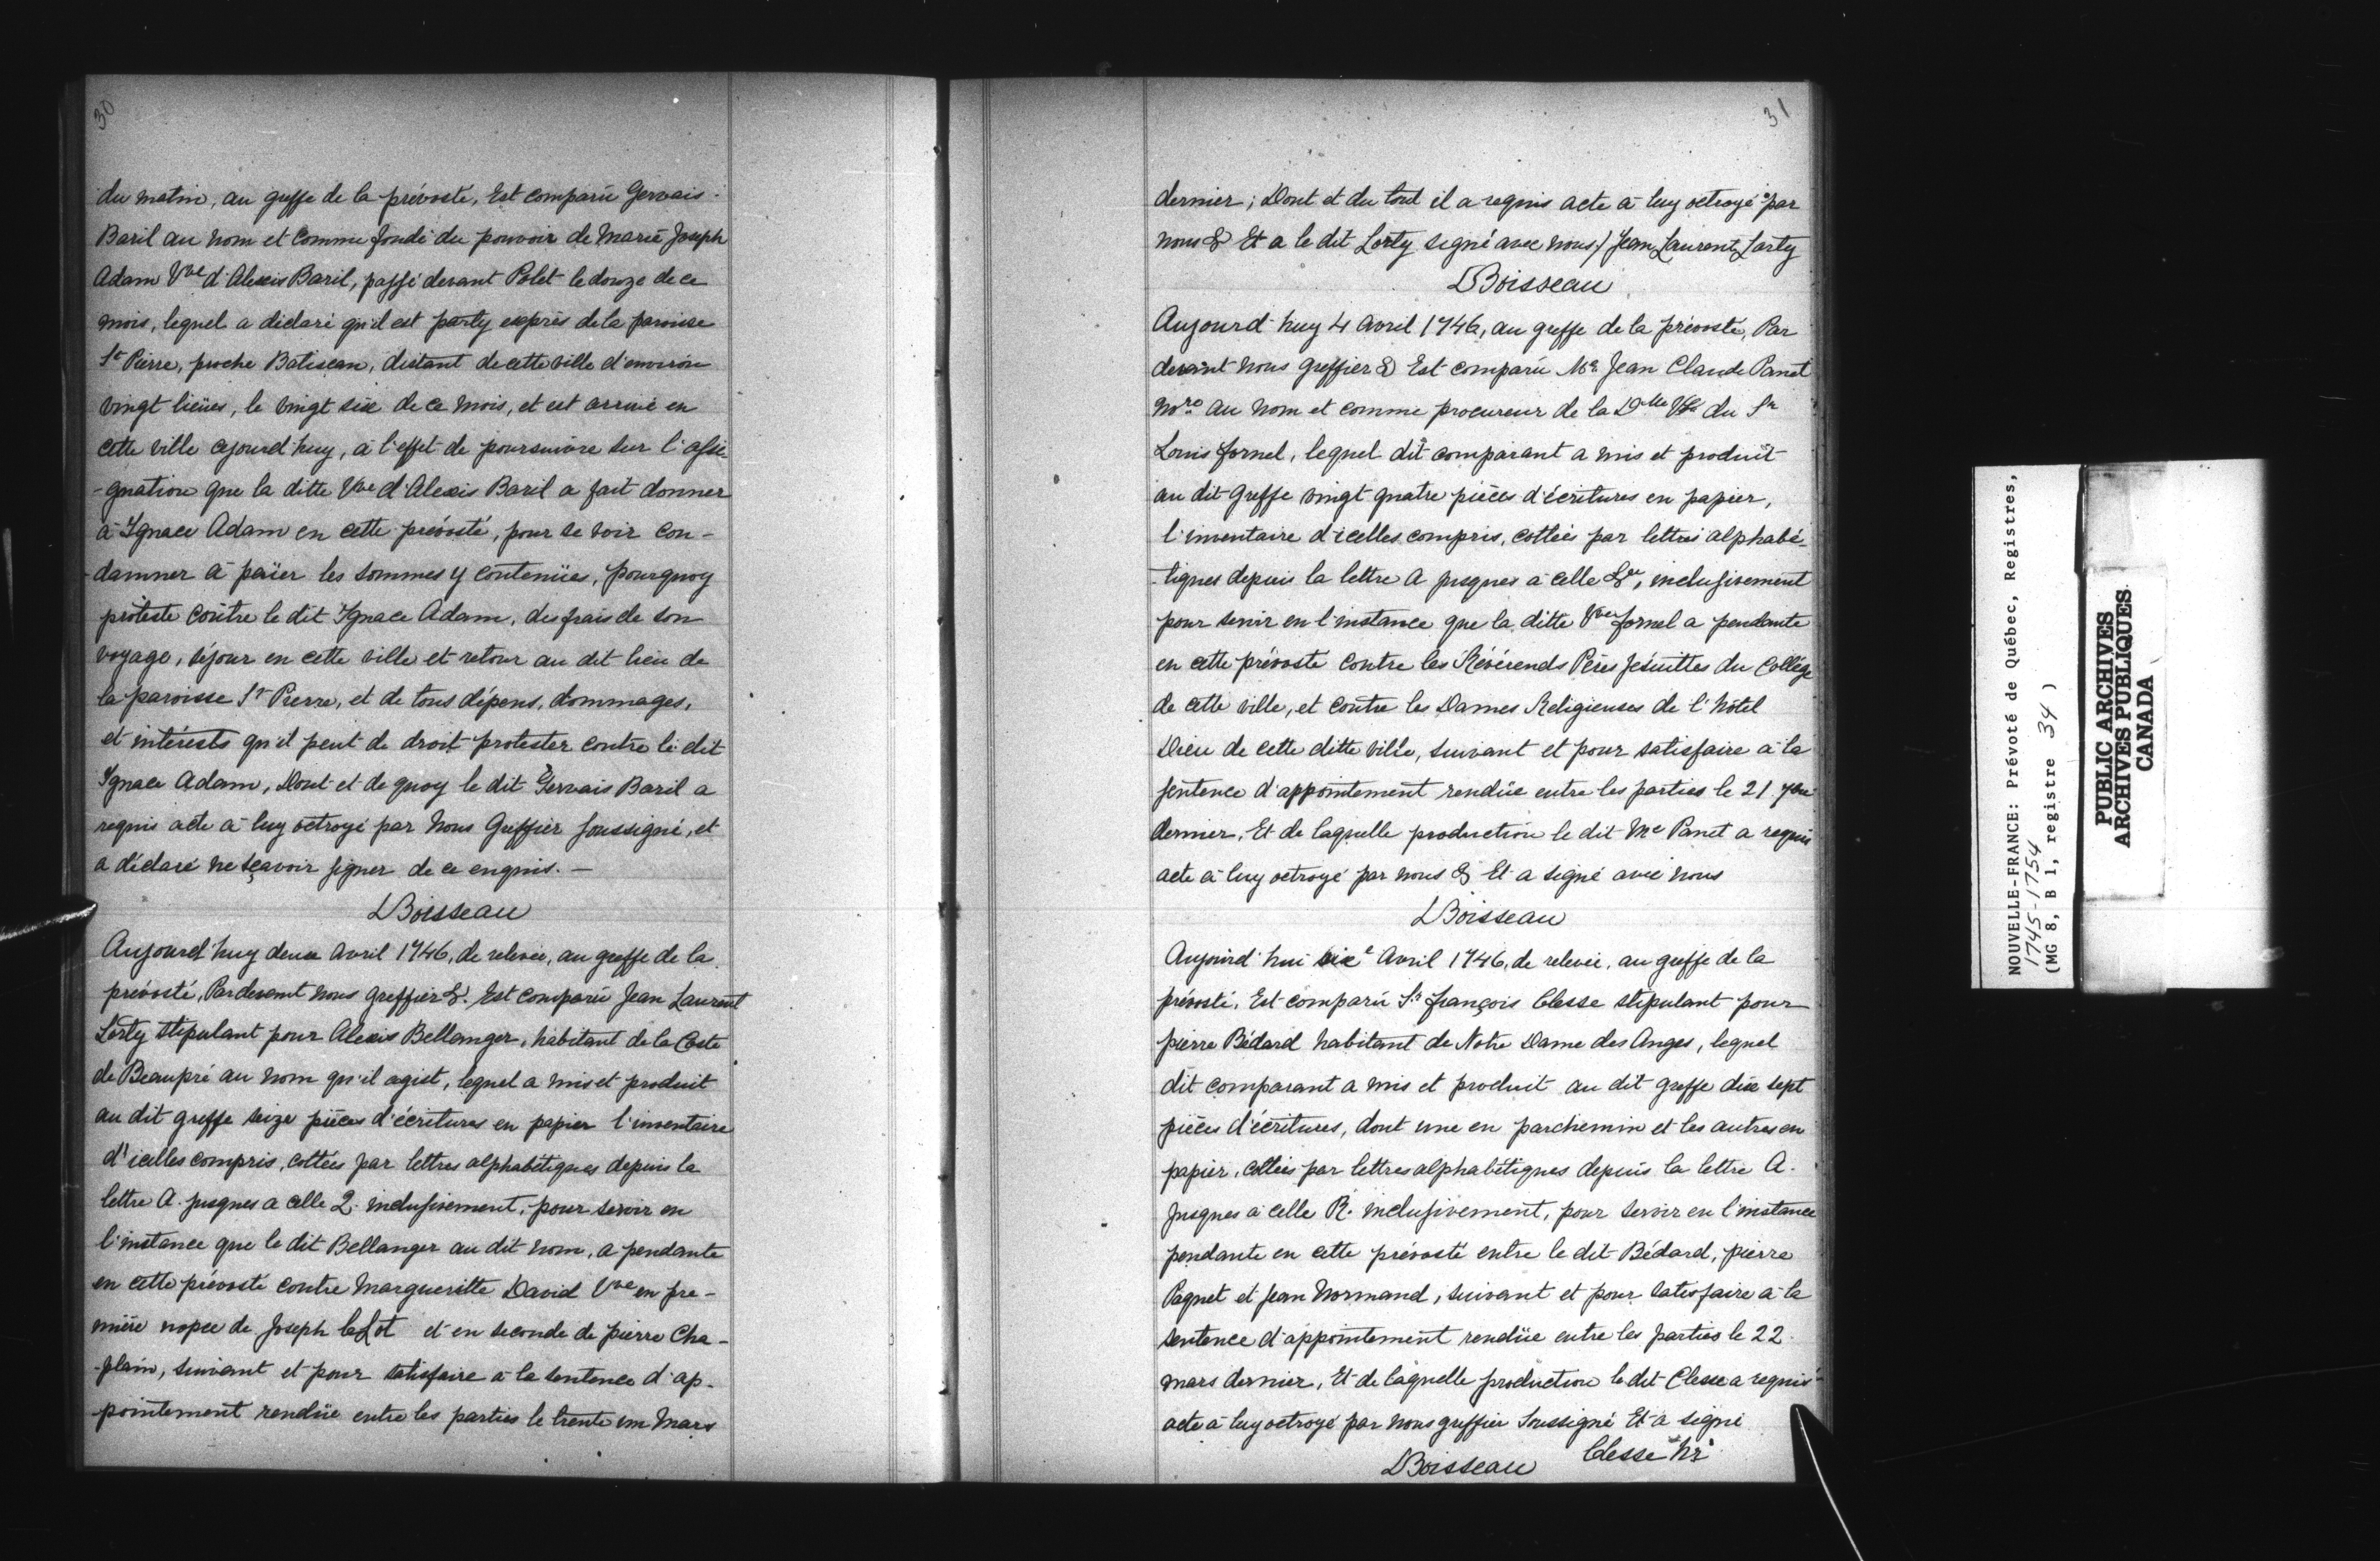 30
du matin, au greffe de la prévosté, Est comparü Gervais
Baril au nom et comme fondé du pouvoir de Marie Joseph
Adam Vve d'Alexis Baril, passé devant Polet le douze de ce
mois, lequel a déclaré qu'il est party exprès de la paroisse
St Pierre, proche Batiscan, distant de cette ville d'environ
vingt lieües, le vingt six de ce mois, et est arrivé en
cette ville cejourd'huy, à l'effet de poursuivre sur l'assi-
-gnation que la ditte Vve d'Alexis Baril a fait donner
à Ignace Adam en cette prévosté, pour se voir con-
-damner à païer les sommes y contenües, pourquoy
proteste contre le dit Ignace Adam, des frais de son
voyage, séjour en cette ville et retour au dit lieu de
la paroisse St Pierre, et de tous dépens, dommages,
et intérests qu'il peut de droit protester contre le dit
Ignace Adam, Dont et de quoy le dit Gervais Baril a
requis acte à luy octroyé par Nous Greffier soussigné, et
a déclaré ne sçavoir signer de ce enquis. —
Boisseau
Aujourd'huy deux avril 1746, de relevée, au greffe de la
prévosté, Pardevant nous greffier &. Est comparü Jean Laurent
Lorty stipulant pour Alexis Bellanger, habitant de la Coste
de Beaupré au nom qu'il agist, lequel a mis et produit
au dit greffe seize pièces d'écritures en papier l'inventaire
d'icelles compris, cottées par lettres alphabétiques depuis la
lettre A. jusques a celle Q. inclusivement, pour servir en
l'instance que le dit Bellanger au dit nom, a pendante
en cette prévosté contre Margueritte David Vve en pre-
mière nopce de Joseph leLot et en seconde de pierre Cha-
-plain, suivant et pour satisfaire à la sentence d'ap-
pointement rendüe entre les parties le trente un Mars
31
dernier; Dont et du tout il a requis acte à luy octroyé par
nous & Et a le dit Lorty signé avec nous/ Jean Laurent Lorty
Boisseau
Aujourd'huy 4 avril 1746, au greffe de la prévosté, Par
devant nous greffier & Est comparü Me Jean Claude Panet
Nore au nom et comme procureur de la Dlle Vve du Sr
Louis fornel, lequel dit comparant a mis et produit
au dit Greffe vingt quatre pièces d'écritures en papier,
l'inventaire d'icelles compris, cottées par lettres alphabé-
-tiques depuis la lettre A jusques à celle &a, inclusivement
pour servir en l'instance que la ditte Vve fornel a pendante
en cette prévosté contre les Révérends Pères Jésuittes du Collége
de cette ville, et contre les Dames Religieuses de l'hôtel
Dieu de cette ditte ville, suivant et pour satisfaire à la
sentence d'appointement rendüe entre les parties le 21 7bre
dernier, Et de laquelle production le dit Me Panet a requis
acte à luy octroyé par nous & Et a signé avec nous
Boisseau
Aujourd'hui six Avril 1746, de relevée, au greffe de la
prévosté, Est comparü Sr François Clesse stipulant pour
pierre Bédard habitant de Notre Dame des Anges, lequel
dit comparant a mis et produit au dit greffe dix sept
pièces d'écritures, dont une en parchemin et les autres en
papier, cottées par lettres alphabétiques depuis la lettre A.
Jusques à celle R. inclusivement, pour servir en l'instance
pendante en cette prévosté entre le dit Bédard, pierre
Paquet et Jean Normand, suivant et pour satisfaire à la
sentence d'appointement rendüe entre les parties le 22
mars dernier, Et de laquelle production le dit Clesse a requis
acte à luy octroyé par nous greffier soussigné Et a signé
Clesse
Boisseau
NOUVELLE-FRANCE: Prévoté de Québec, Registres,
1745-1754
(MG 8, B 1, registre 34 )
PUBLIC ARCHIVES
ARCHIVES PUBLIQUES
CANADA